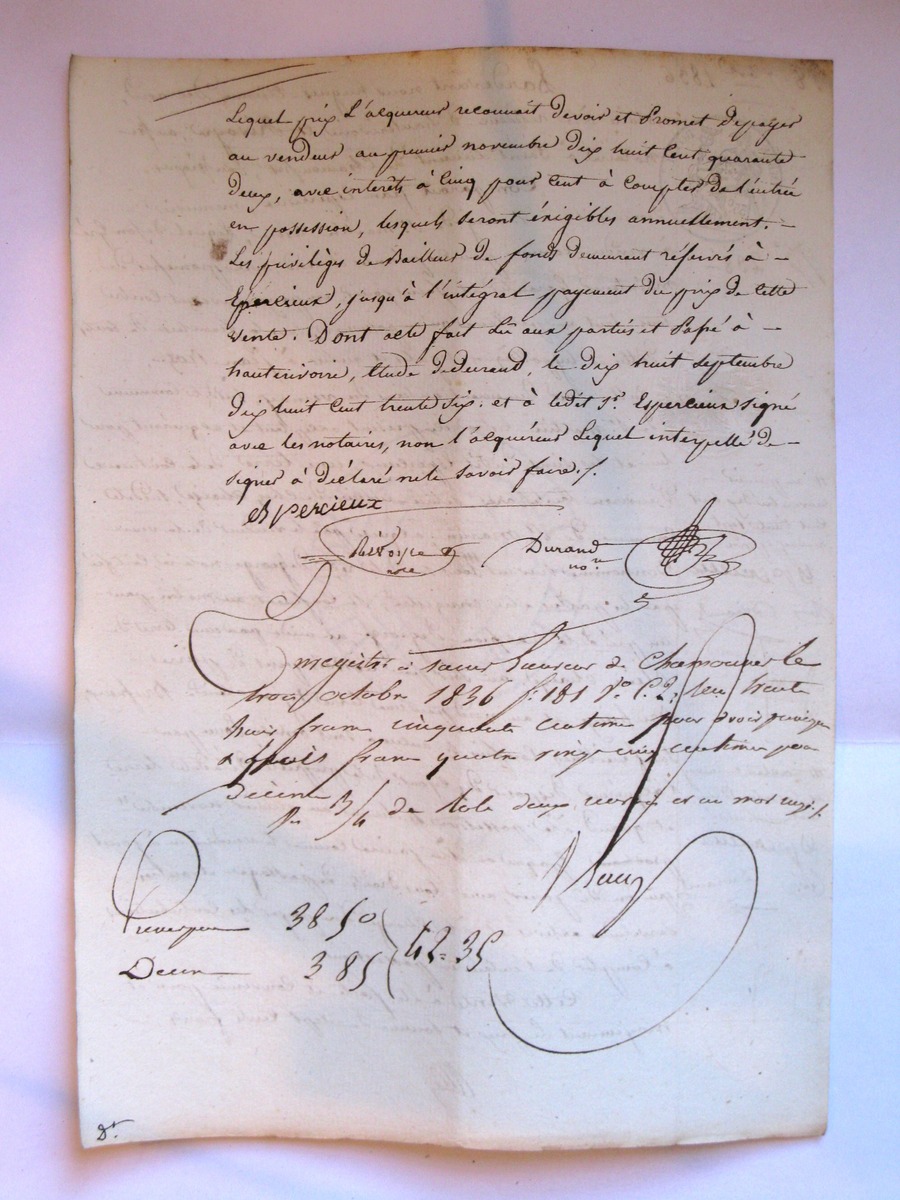 Lequel prix L'acquereur reconnait devoir et Promet depayer
au vendeur au premier novembre dix huit Cent quarante
deux, avec interêts à Cinq pour Cent à Compter de l'entrée
en possession, lesquels seront éxigibles annuellement. –
Les privilèges de Bailleur de fonds demeurant réservés à –
Epercieux, jusqu'à l'intégral payement du prix de Cette
vente. Dont acte fait Lû aux parties et Passé à –
hauterivoire, Etude de Durand, le dix huit septembre
Dix huit Cent trente six. et à ledit Sr. Espercieux signé
avec les notaires, non l'acquéreur Lequel interpellé de –
signer à Déclaré ne le savoir faire./.
Espercieux
Durand
nore
Enregistré à le
trois octobre 1836 fo. 181 Vo. C. 2. trente
huit francs cinquante centimes pour
& trois francs quatre vingt cinq centimes pour
Décime
de deux et un mot
38 50
Decime 3 85 42=35
Dt.